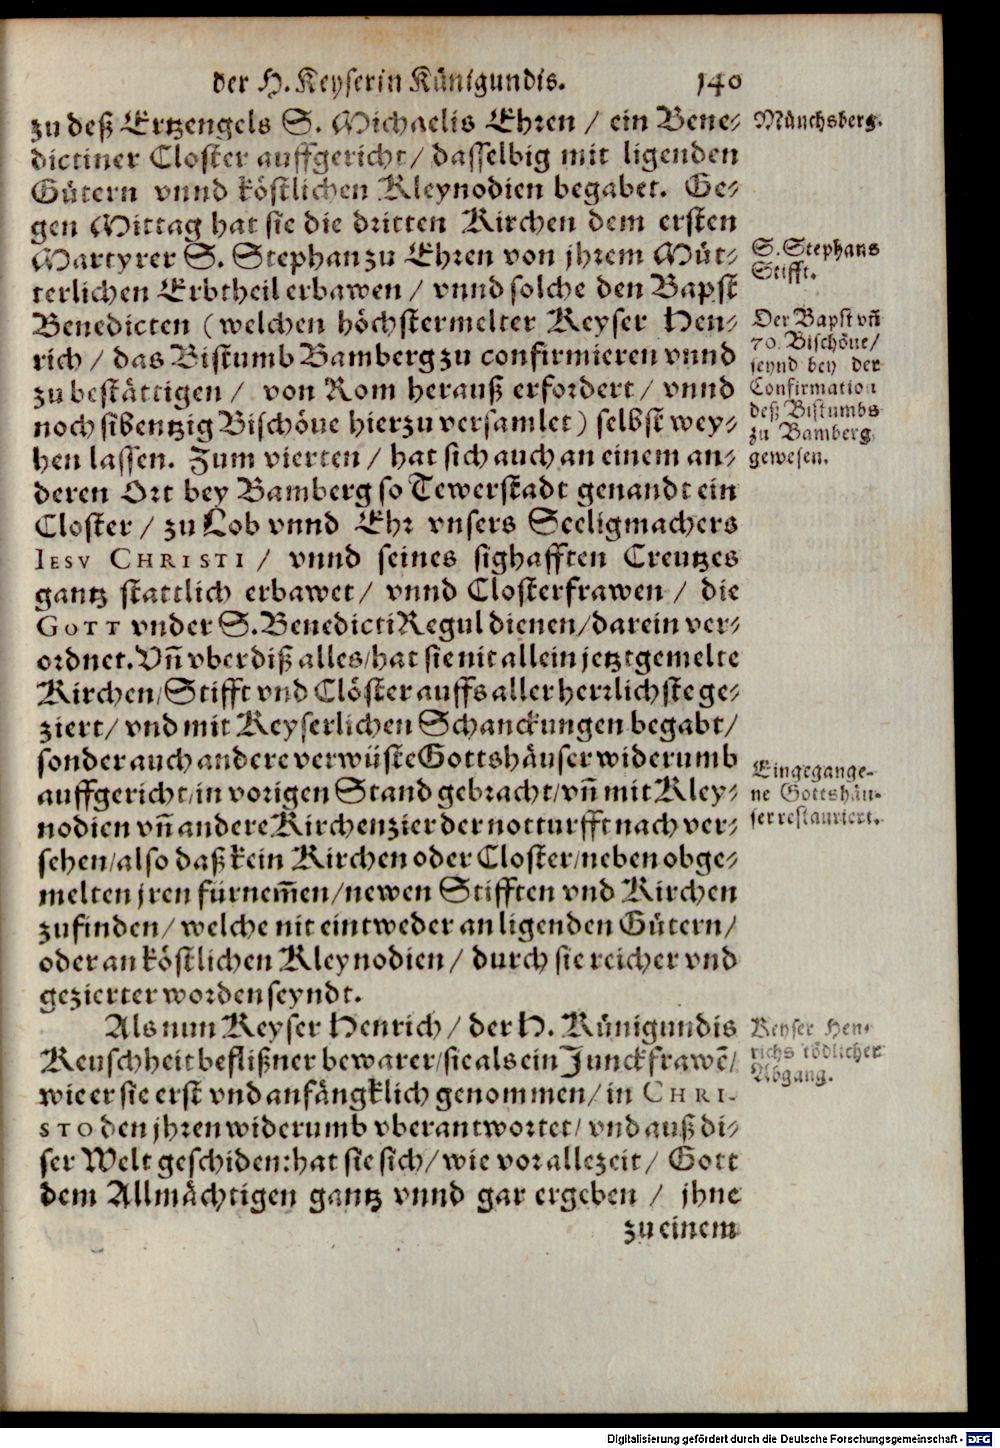 der H. Keyserin Künigundis. 140
zu deß Ertzengels S. Michaelis Ehren / ein Bene-
dictiner Closter auffgericht / dasselbig mit ligenden
Gütern vnnd köstlichen Kleynodien begabet. Ge-
gen Mittag hat sie die dritten Kirchen dem ersten
Martyrer S. Stephan zu Ehren von jhrem Müt-
terlichen Erbtheil erbawen / vnnd solche den Bapst
Benedicten (welchen höchstermelter Keyser Hen-
rich / das Bistumb Bamberg zu confirmieren vnnd
zu bestättigen / von Rom herauß erfordert / vnnd
noch sibentzig Bischöue hierzu versamlet) selbst wey-
hen lassen. Zum vierten / hat sich auch an einem an-
deren Ort bey Bamberg so Tewerstadt genandt ein
Closter / zu Lob vnnd Ehr vnsers Seeligmachers
IESV CHRISTI / vnnd seines sighafften Creutzes
gantz stattlich erbawet / vnnd Closterfrawen / die
GOTT vnder S. Benedicti Regul dienen / darein ver-
ordnet. Vn̄ vber diß alles / hat sie nit allein jetztgemelte
Kirchen / Stifft vnd Clöster auffs allerherrlichste ge-
ziert / vnd mit Keyserlichen Schanckungen begabt /
sonder auch andere verwüste Gottshäuser widerumb
auffgericht / in vorigen Stand gebracht / vn̄ mit Kley-
nodien vn̄ andere Kirchenzier der notturfft nach ver-
sehen / also daß kein Kirchen oder Closter / neben obge-
melten jren fürnem̄en / newen Stifften vnd Kirchen
zufinden / welche nit eintweder an ligenden Gütern /
oder an köstlichen Kleynodien / durch sie reicher vnd
gezierter worden seyndt.
Als nun Keyser Henrich / der H. Künigundis
Keuschheit beflißner bewarer / sie als ein Junckfrawē /
wie er sie erst vnd anfängklich genommen / in CHRI-
STO den jhren widerumb vberantwortet / vnd auß di-
ser Welt geschiden: hat sie sich / wie vor allezeit / Gott
dem Allmächtigen gantz vnnd gar ergeben / jhne
zu einem
Münchsberg.
S. Stephans
Stifft.
Der Bapst vn̄
70. Bischöue /
seynd bey der
Confirmation
deß Bistumbs
zu Bamberg
gewesen.
Eingegange-
ne Gottshäu-
ser restauriert.
Keyser Hen-
richs tödlicher
Abgang.
Digitalisierung gefördert durch die Deutsche Forschungsgemeinschaft - DFG